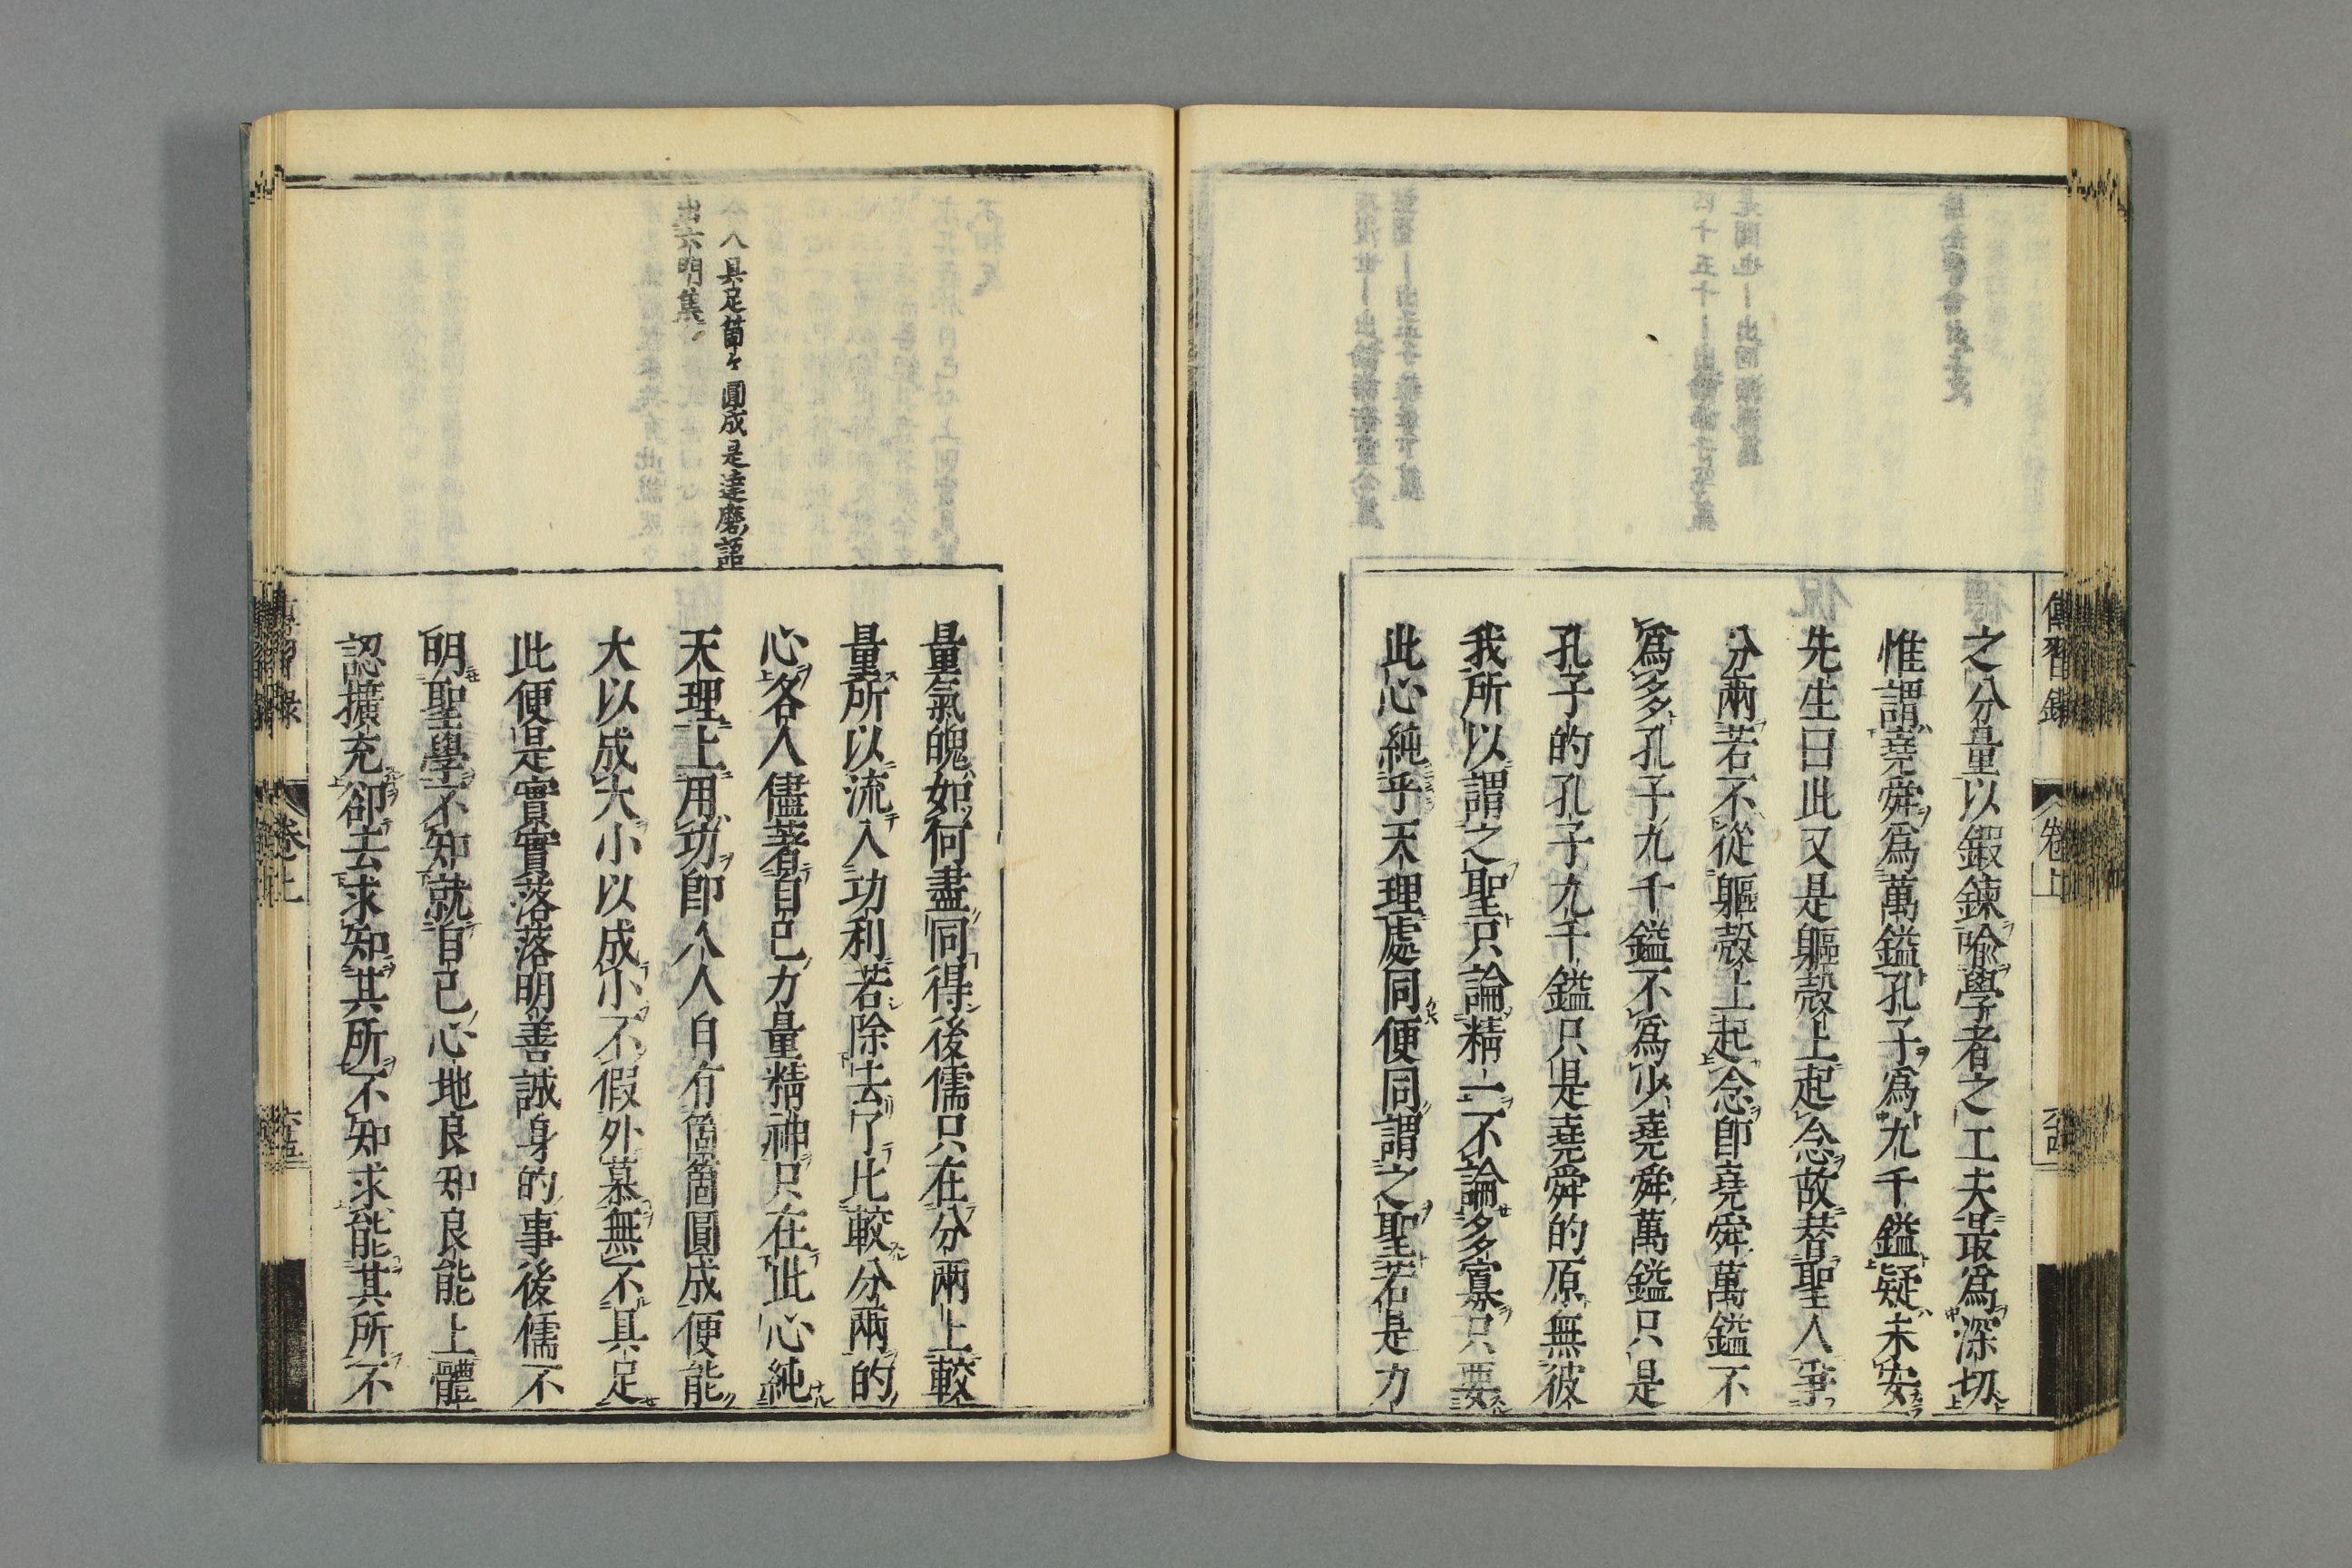 傳習錄
卷上
之分量以鍛鍊喩學者之工夫最爲深切
惟謂堯舜爲萬鎰孔子爲九千鎰疑未安
先生曰此又是軀殼上起念故替聖人爭
分兩若不從軀殼上起念卽堯舜萬鎰不
爲多孔子九千鎰不爲少堯舜萬鎰只是
孔子的孔子九千鎰只是堯舜的原無彼
我所以謂之聖只論精一不論多寡只要
此心純乎天理處同便同謂之聖若是力
量氣魄如何盡同得後儒只在分兩上較
量所以流入功利若除去了比較分兩的
心各人儘著自己力量精神只在此心純
天理上用功卽人人自有箇箇圓成便能
大以成大小以成小不假外慕無不具足
此便是實實落落明善誠身的事後儒不
明聖學不知就自己心地良知良能上體
認擴充卻去求知其所不知求能其所不
人人具足箇々圓成是達磨語
出六門集
傳習錄
卷上